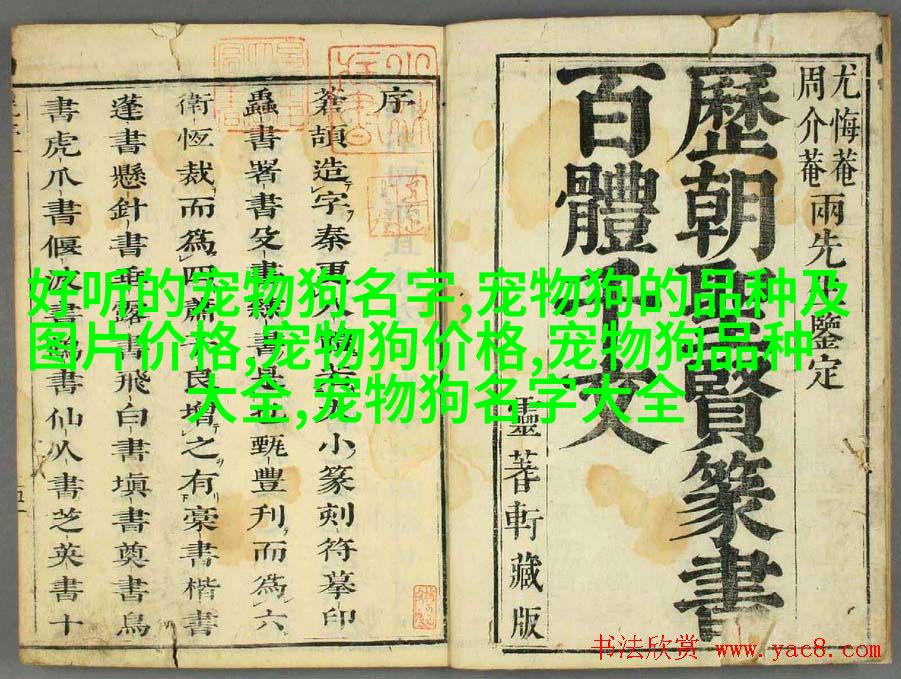 好听的宠物狗名字,宠物狗的品种及
图片价格,宠物狗价格,宠物狗品种
大全,宠物狗名字大全
尤悔菴
周介菴
兩先生鑒定
歷朝聖賢篆書
百體千文
靈蓍軒藏版
序
蒼頡造字秦更小篆刻符摹印
蟲書署書殳書隸書是也甄豐刋而爲六
衛恆裁而爲四蕭子良增之有藁書楷書
蓬書懸針書垂露書飛白書塡書奠書鳥
書虎爪書偃波書鶴書仙人書芝英書十
书法欣赏 www.yac8.com